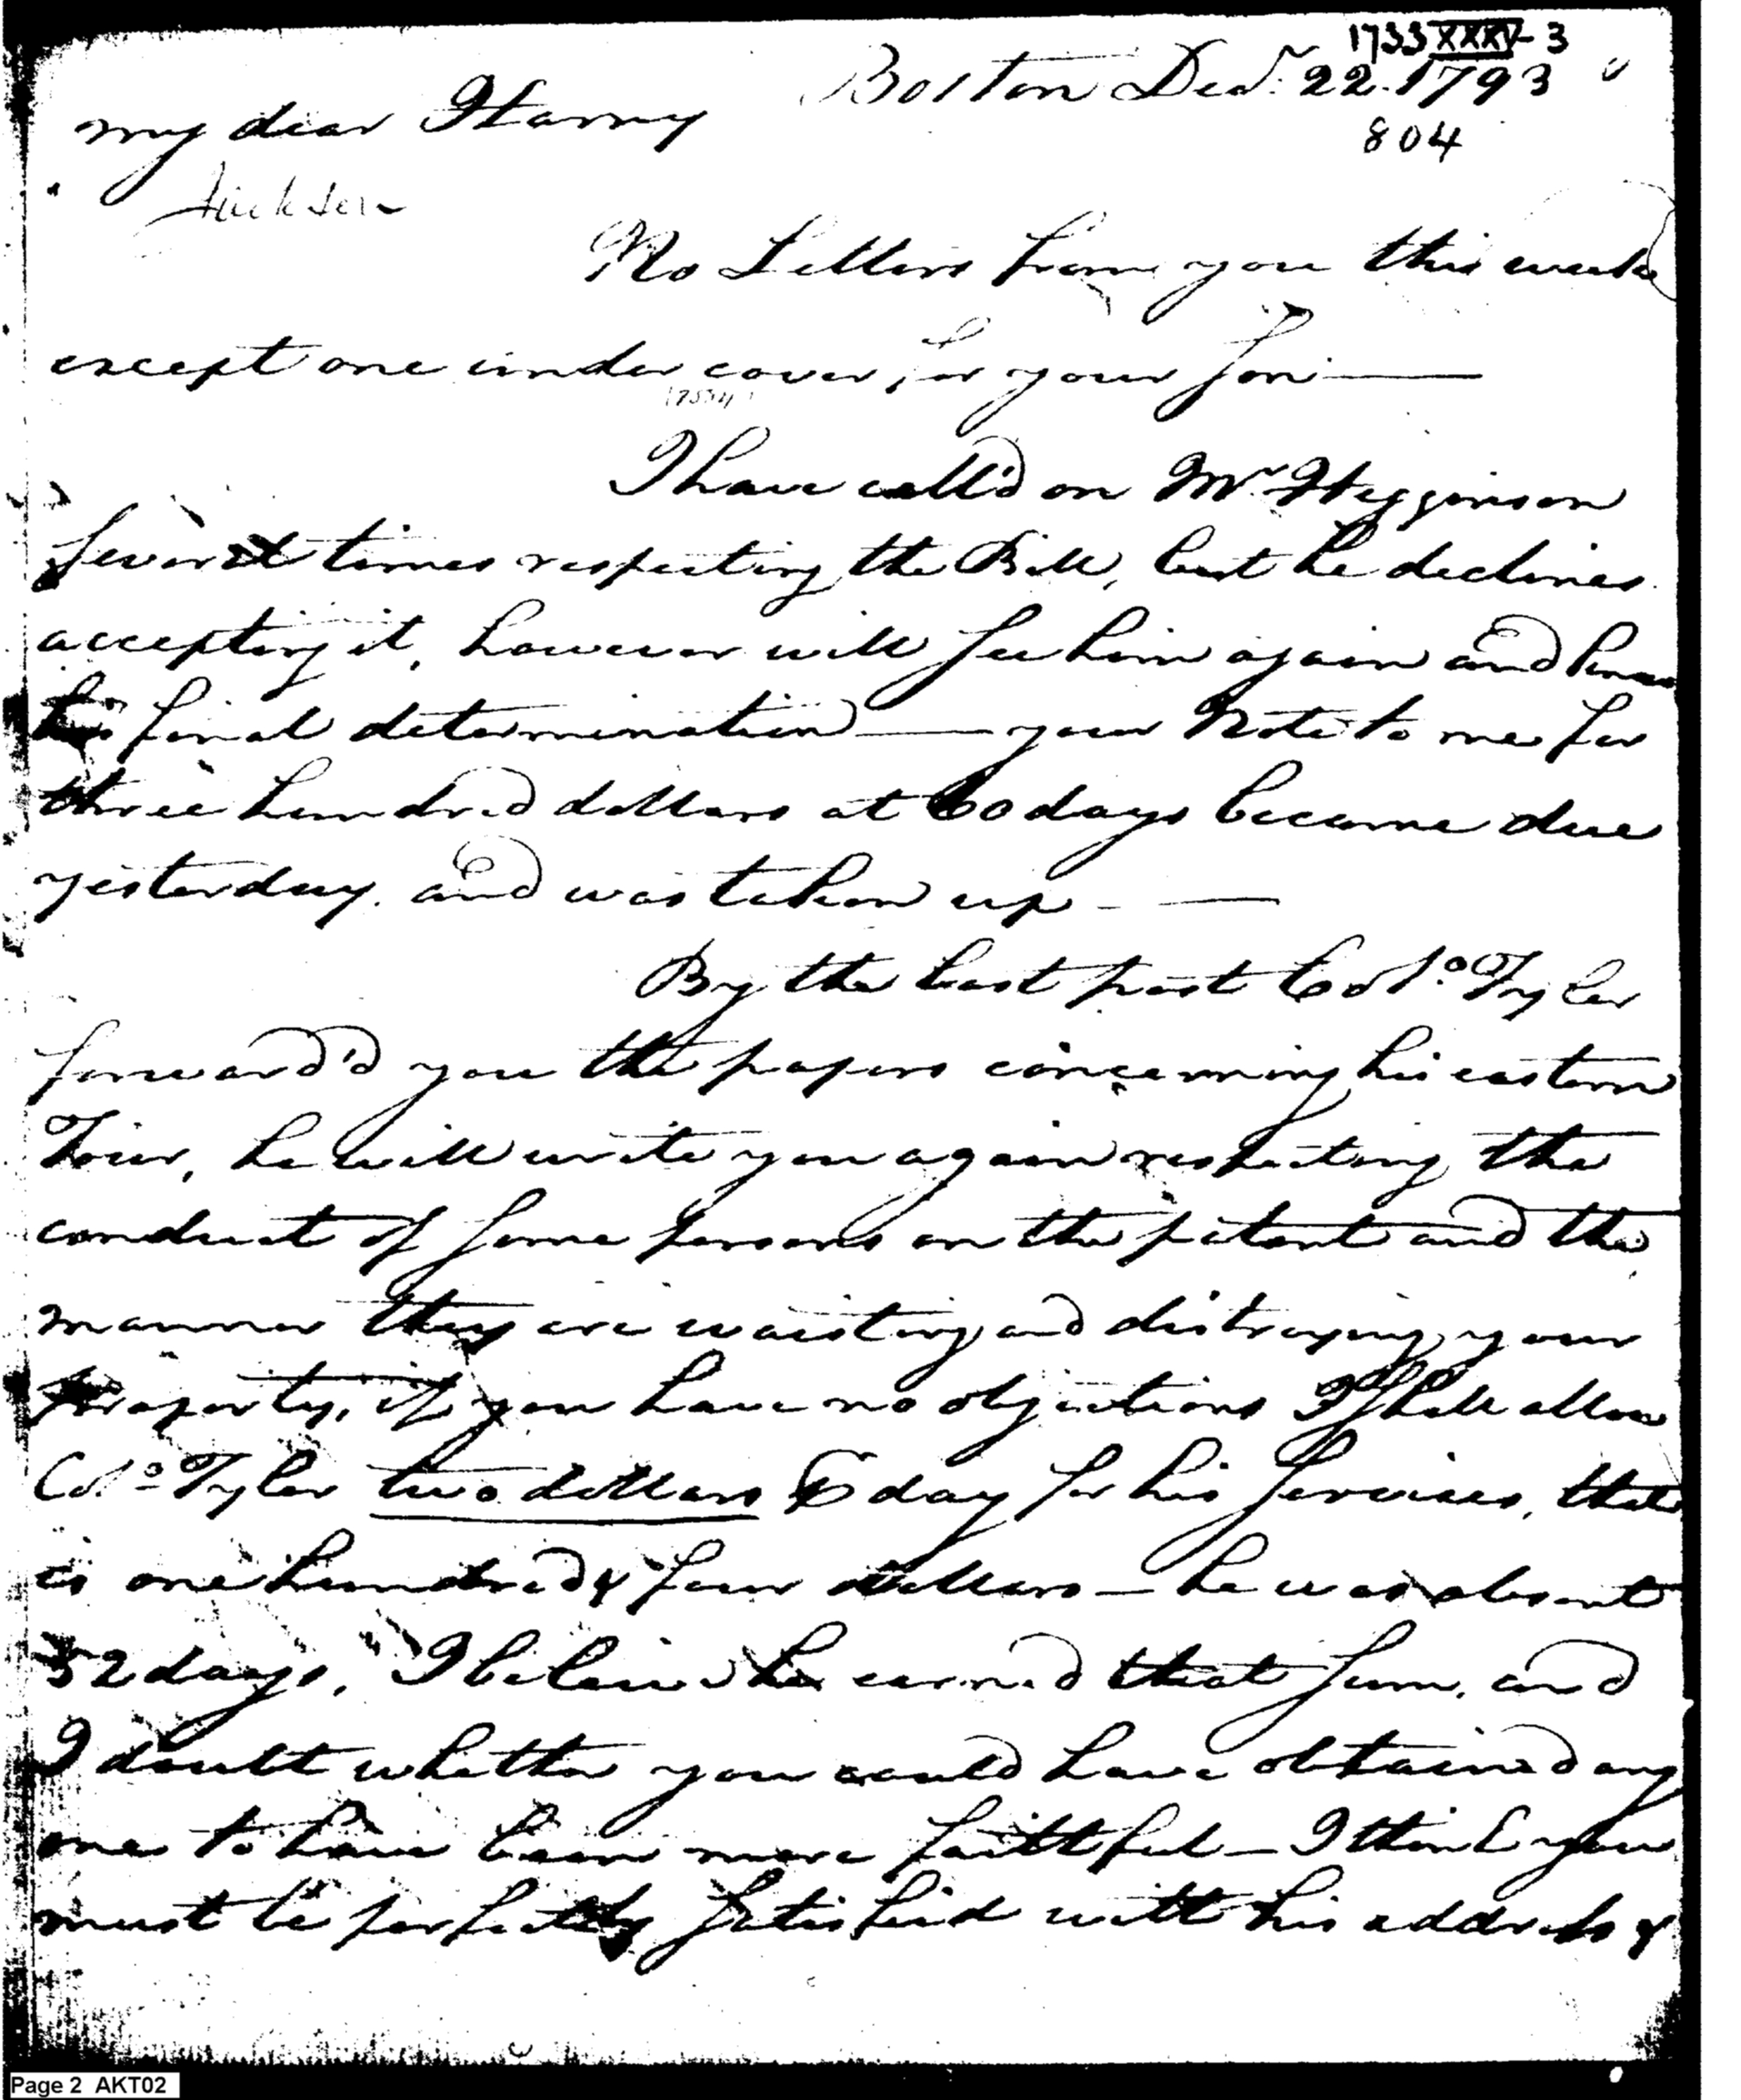 1733 XXXV-3
Boston Decr. 22. 1793
804
my dear Harry
Jackson
No Letters from you this week
except one under cover for your son —
I have call'd on Mr Higginson
several times respecting the Bill, but he declines
accepting it, however will see him again and know
his final determination — your Note to me for
three hundred dollars at 60 days became due
yesterday. and was taken up - —
By the last post Colo. Tyler
forward'd you the papers concerning his eastern
Tour, he will write you again respecting the
conduct of some persons on the patent and the
manner they are waisting and distroying your
property, if you have no objections I shall allow
Colo Tyler two dollars ⅌ day for his services, that
is one hundred & four dollars — he was absent
52 days, I beleive he earned that sum, and
I doubt whether you could have obtained any
one to have been more faithful — I think you
must be perfectly satisfied with his address &
Page 2 AKT02